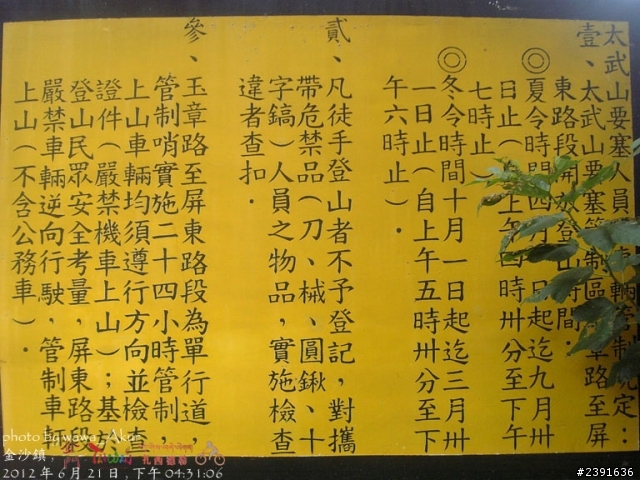 太武山要塞人員 車輛管制規定：
壹、太武山要塞管制區 章路至屏
東路段開放登山時間：
◎夏令時間四月 日起迄九月卅
日止（ 上午四時卅分至下午
七時止）
◎冬令時間十月一日起迄三月卅
一日止（自上午五時卅分至下
午六時止）．
貳、凡徒手登山者不予登記，對攜
帶危禁品（刀、械、圓鍬、十
字鎬）人員之物品，實施檢查
違者查扣．
參、玉章路至屏東路段為單行道，
管制哨實施二十四小時管制，
上山車輛均須遵行方向並檢查
證件（嚴禁機車上山）；基於
登山民眾安全考量，屏東路段
嚴禁車輛逆向行駛，管制車輛
上山（不含公務車）．
photo by wawa
金沙鎮，
2012 年 6 月 21 日，下午 04:31:06
#2391636